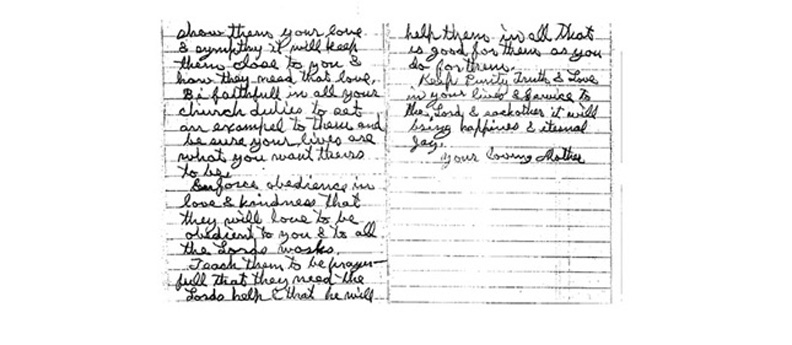 show them your love
& sympthy it will keep
them close to you &
how they need that love.
Be faithfull in all your
church duties to set
an exampel to them and
be sure your lives are
what you want theirs
to be.
Enforce obedience in
love & kindness that
they will love to be
obedient to you & to all
the Lords works.
Teach them to be prayer-
full that they need the
Lords help & that he will
help them in all that
is good for them as you
do for them.
Keep Purity Truth & Love
in your lives & service to
the Lord & eachother it will
bring happines & eternal
Joy.
your loving Mother